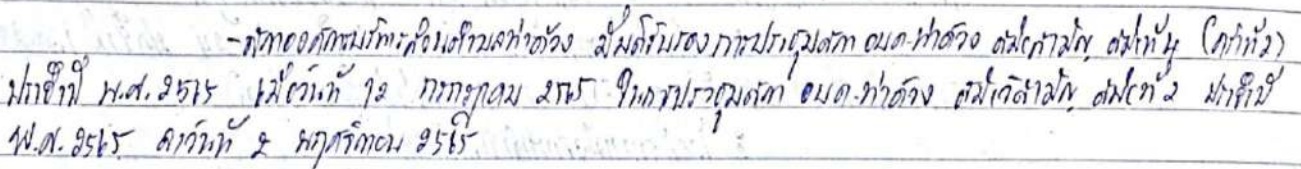 -สภาองค์การบริหารส่วนตำบลท่าด้วง มีมติรับรองการประชุมสภา อบต.ท่าด้วง สมัยสามัญ สมัยที่ ๒ (ครั้งที่ ๑)
ประจำปี พ.ศ. 2565 เมื่อวันที่ 12 กรกฎาคม 2565 ในการประชุมสภา อบต.ท่าด้วง สมัยวิสามัญ สมัยที่ 2 ประจำปี
พ.ศ. 2565 ลงวันที่ 2 พฤศจิกายน 2565